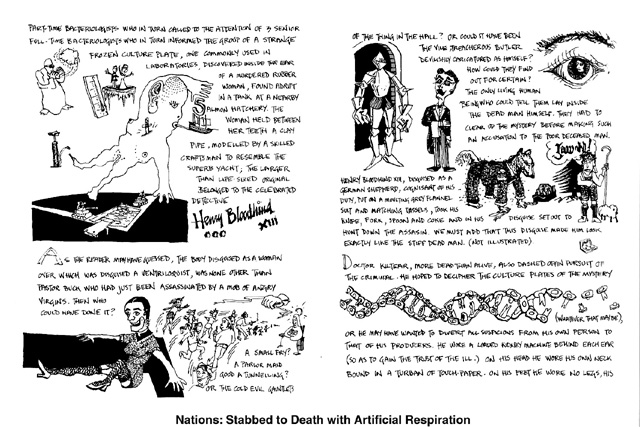 PART-TIME BACTERIOLOGISTS WHO IN TURN CALLED TO THE ATTENTION OF 3 SENIOR
FULL-TIME BACTERIOLOGISTS WHO IN TURN INFORMED THE GROUP OF A STRANGE
FROZEN CULTURE PLATE, ONE COMMONLY USED IN
LABORATORIES, DISCOVERED INSIDE THE EAR
OF A MURDERED RUBBER
WOMAN, FOUND ADRIFT
IN A TANK AT A NEARBY
SALMON HATCHERY. THE
WOMAN HELD BETWEEN
HER TEETH A CLAY
PIPE, MODELLED BY A SKILLED
CRAFTSMAN TO RESEMBLE THE
SUPERB YACHT, THE LARGER
THAN LIFE SIZED ORIGINAL
BELONGED TO THE CELEBRATED
DETECTIVE
Henry Bloodhund
XIII
AS THE READER MAY HAVE GUESSED, THE BODY DISGUISED AS A WOMAN
OVER WHICH WAS DISGUISED A VENTRILOQUIST, WAS NONE OTHER THAN
PASTOR BUCH WHO HAD JUST BEEN ASSASSINATED BY A MOB OF ANGRY
VIRGINS. THEN WHO
COULD HAVE DONE IT?
A SMALL FRY?
A PARLOR MAID
GOOD AT TUNNELLING?
OR THE COLD EVIL GAUNTLETS
OF THE THING IN THE HALL? OR COULD IT HAVE BEEN
THE VILE TREACHEROUS BUTLER
DEVILISHLY CARICATURED AS HIMSELF?
HOW COULD THEY FIND
OUT FOR CERTAIN?
THE ONLY LIVING HUMAN
BEING WHO COULD TELL THEM LAY INSIDE
THE DEAD MAN HIMSELF. THEY HAD TO
CLEAR UP THE MYSTERY BEFORE MAKING SUCH
AN ACCUSATION TO THE POOR DECEASED MAN.
Jawohl!
HENRY BLOODHUND XIII, DISGUISED AS A
GERMAN SHEPHERD, COGNISANT OF HIS
DUTY, PUT ON A MOULTING GREY FLANNEL
SUIT AND MATCHING TASSELS, TOOK HIS
KNIFE, FORK, SPOON AND COKE AND IN HIS DISGUISE SET OUT TO
HUNT DOWN THE ASSASSIN. WE MUST ADD THAT THIS DISGUISE MADE HIM LOOK
EXACTLY LIKE THE STIFF DEAD MAN. (NOT ILLUSTRATED).
DOCTOR KILTEAR, MORE DEAD THAN ALIVE, ALSO DASHED OFF IN PURSUIT OF
THE CRIMINAL. HE HOPED TO DECIPHER THE CULTURE PLATES OF THE MYSTERY
(WHATEVER THAT MAY BE),
OR HE MAY HAVE WANTED TO DIVERT ALL SUSPICIONS FROM HIS OWN PERSON TO
THAT OF HIS PRODUCERS. HE WORE A LOADED KIDNEY MACHINE BEHIND EACH EAR
(SO AS TO GAIN THE TRUST OF THE ILL.) ON HIS HEAD HE WORE HIS OWN NECK
BOUND IN A TURBAN OF TOUCH-PAPER. ON HIS FEET HE WORE NO LEGS, HIS
Nations: Stabbed to Death with Artificial Respiration